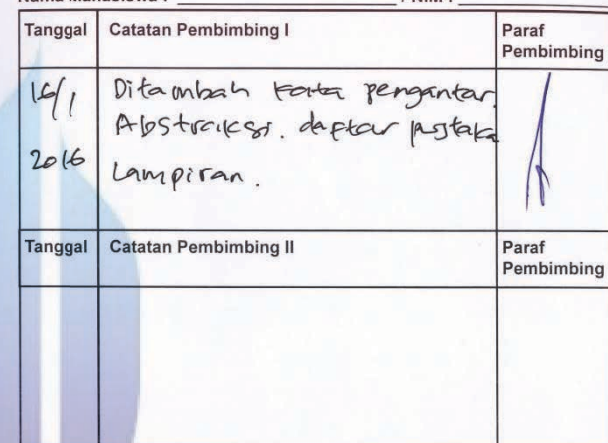 Tanggal Catatan Pembimbing I Paraf Pembimbing
16/1 Ditambah kata pengantar,
Abstraksi. daftar pustaka
2016 Lampiran.
Tanggal Catatan Pembimbing II Paraf Pembimbing